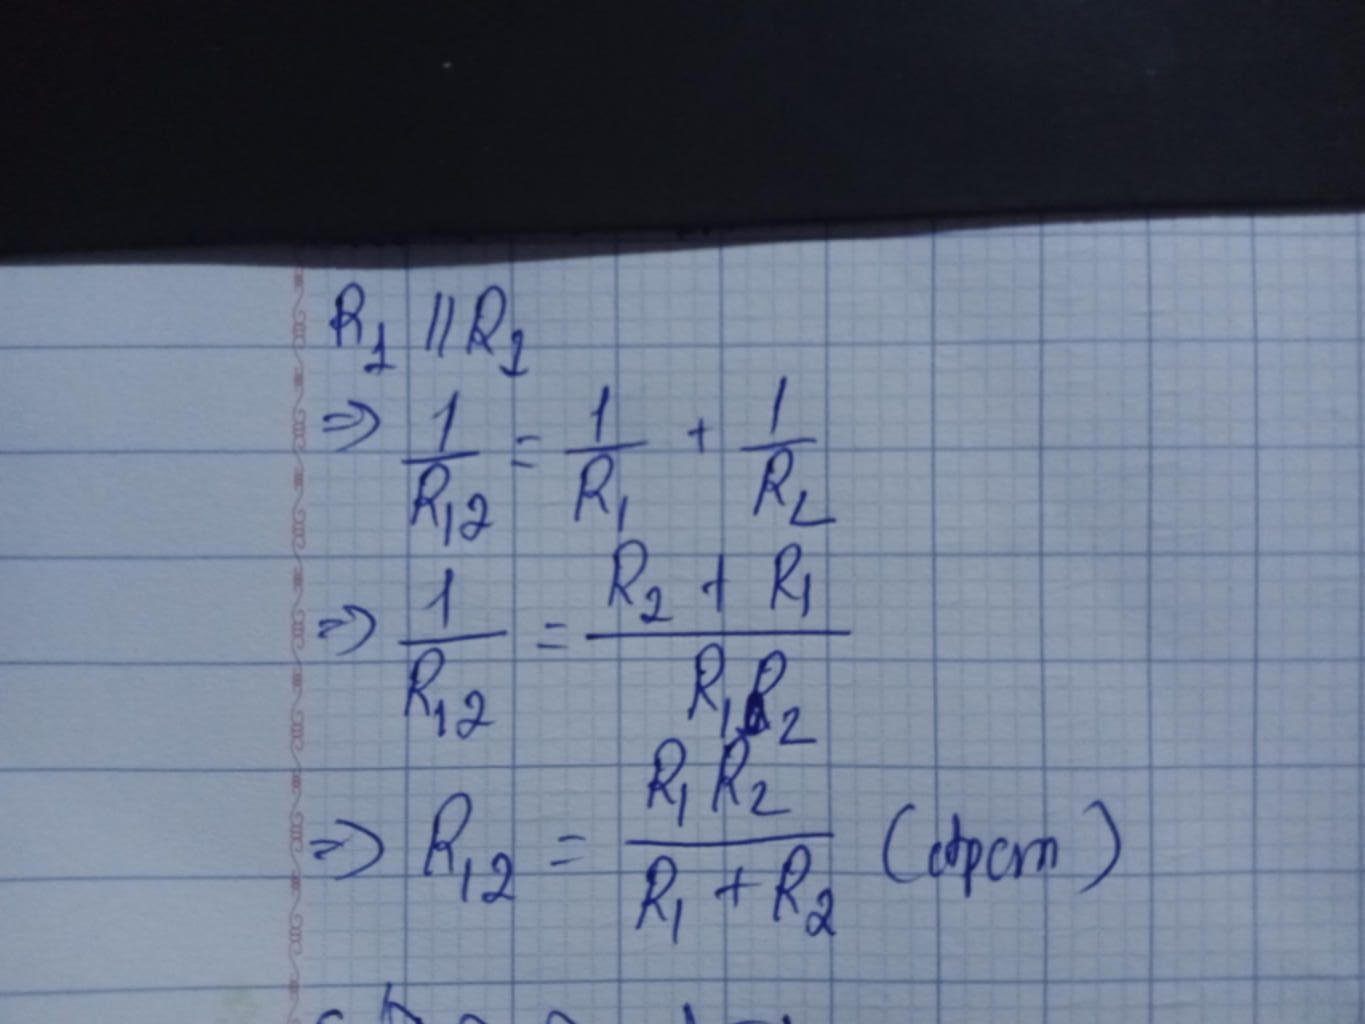 R₁ // R₂
⇒ 1/R₁₂ = 1/R₁ + 1/R₂
⇒ 1/R₁₂ = (R₂ + R₁)/(R₁R₂)
⇒ R₁₂ = (R₁R₂)/(R₁ + R₂) (đpcm)